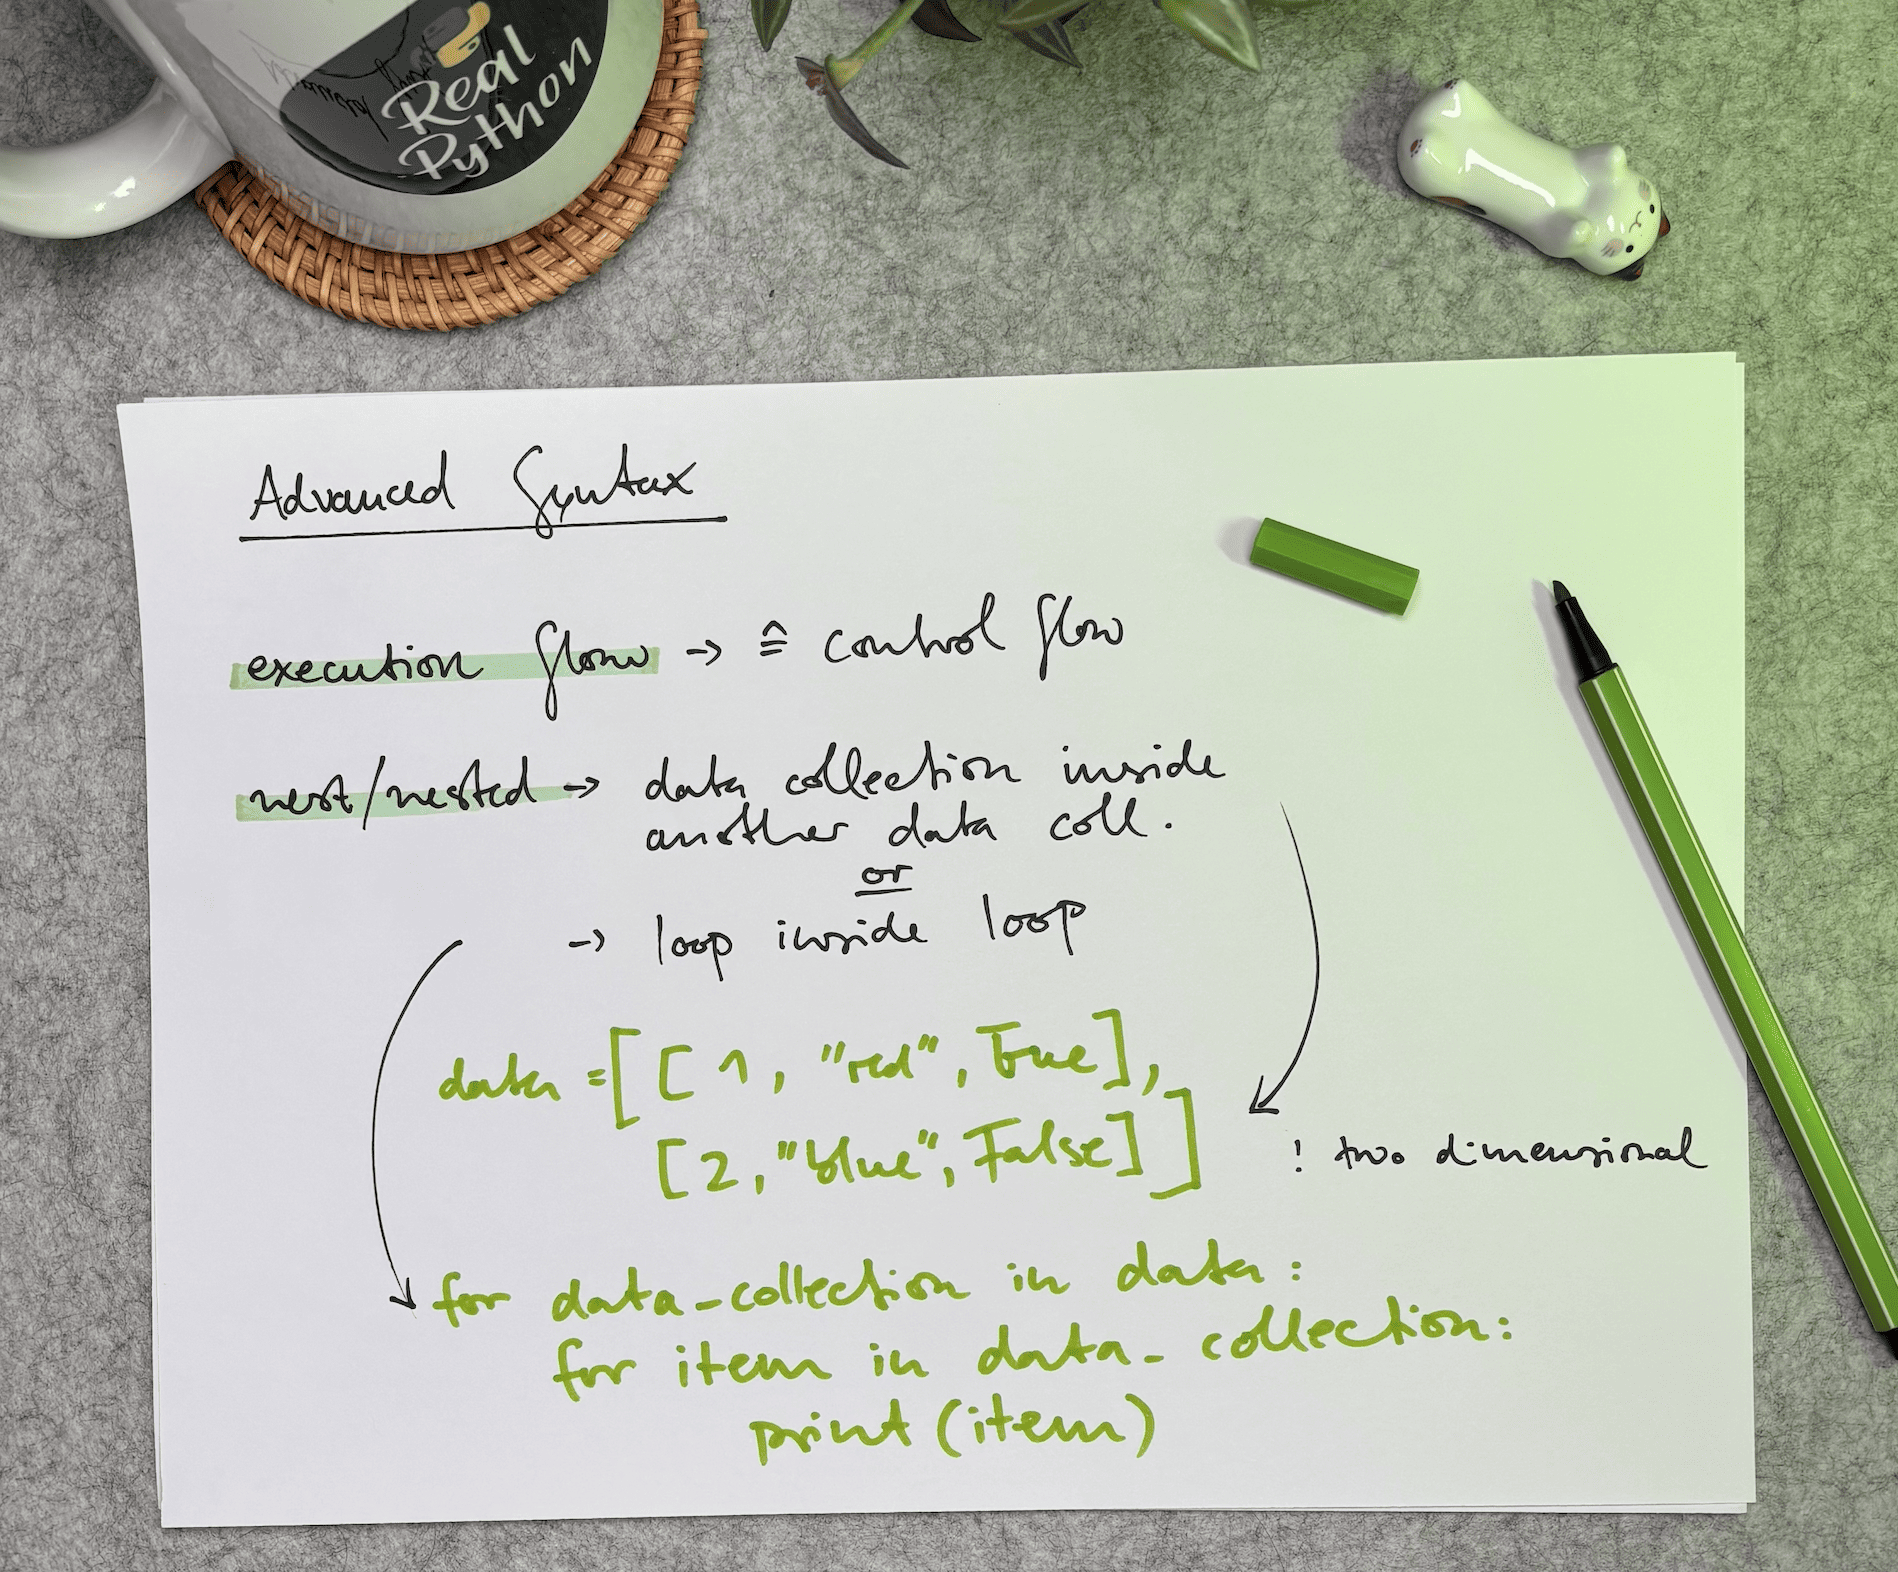 Real
Python
Advanced Syntax
execution flow → ≙ control flow
nest/nested → data collection inside
another data coll.
or
→ loop inside loop
data = [ [ 1, "red", True ],
[ 2, "blue", False ] ]
! two dimensional
for data_collection in data:
for item in data_collection:
print (item)